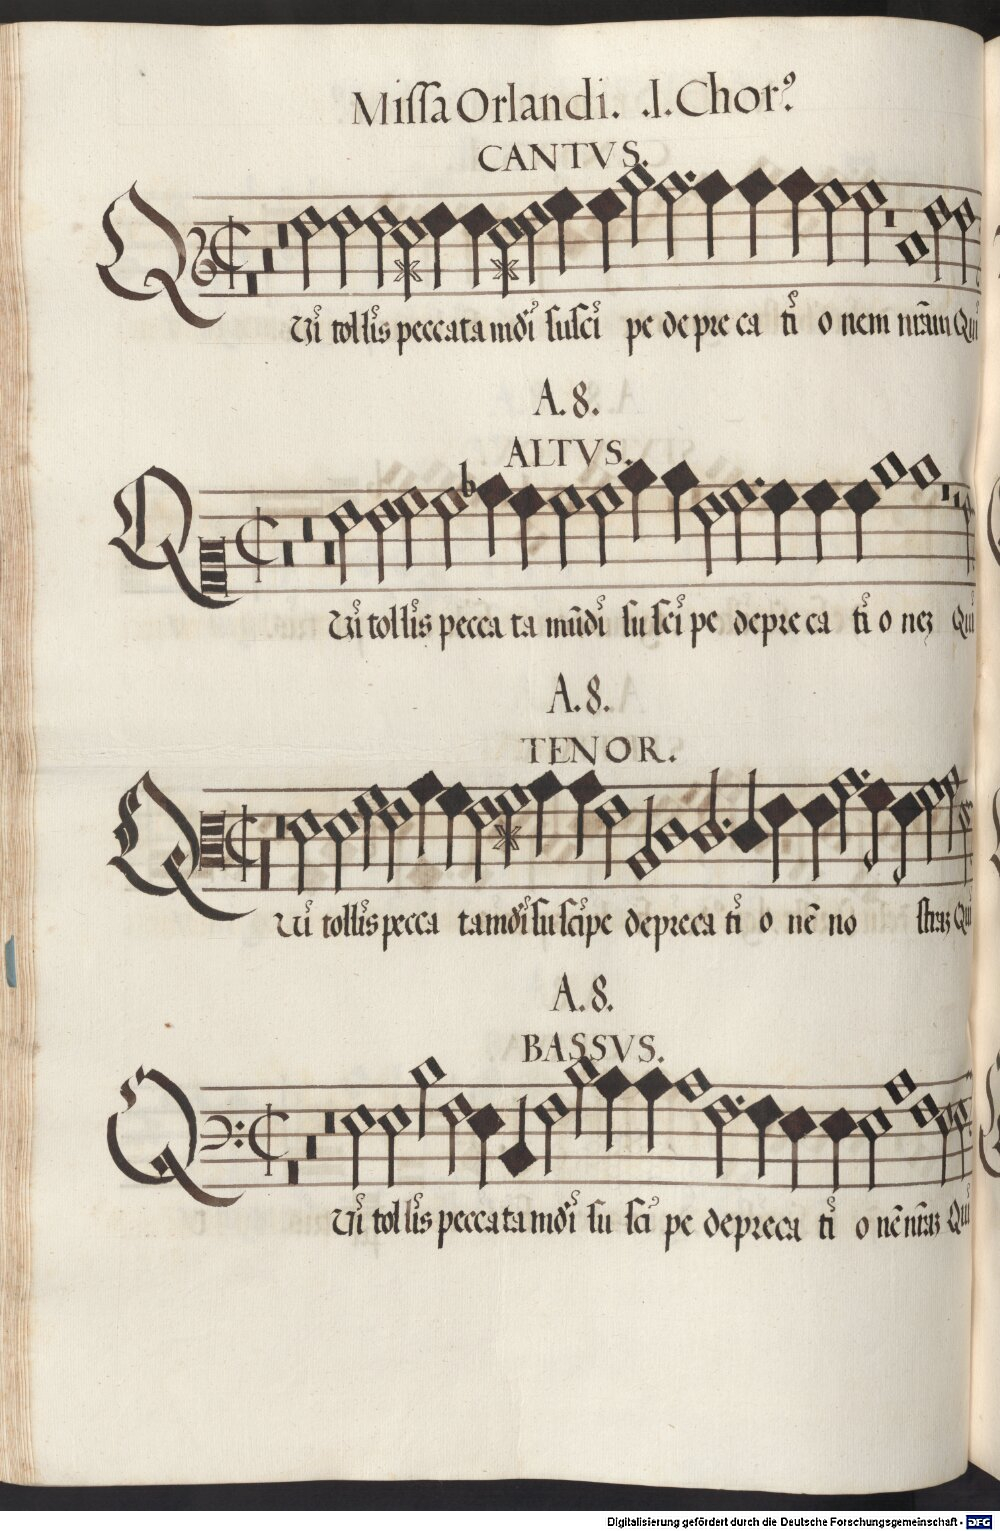 Missa Orlandi. .I. Chor⁹.
CANTVS.
Qui tollis peccata mūdi susci pe depre ca ti o nem nr̄am Qui
A. 8.
ALTVS.
Qui tollis pecca ta mūdi su sci pe depre ca ti o nez Qui
A. 8.
TENOR.
Qui tollis pecca ta mūdi suscipe depreca ti o nē no straz Qui
A. 8.
BASSVS.
Qui tollis peccata mūdi su sci pe depreca ti o nē nr̄az Qui
Digitalisierung gefördert durch die Deutsche Forschungsgemeinschaft - DFG